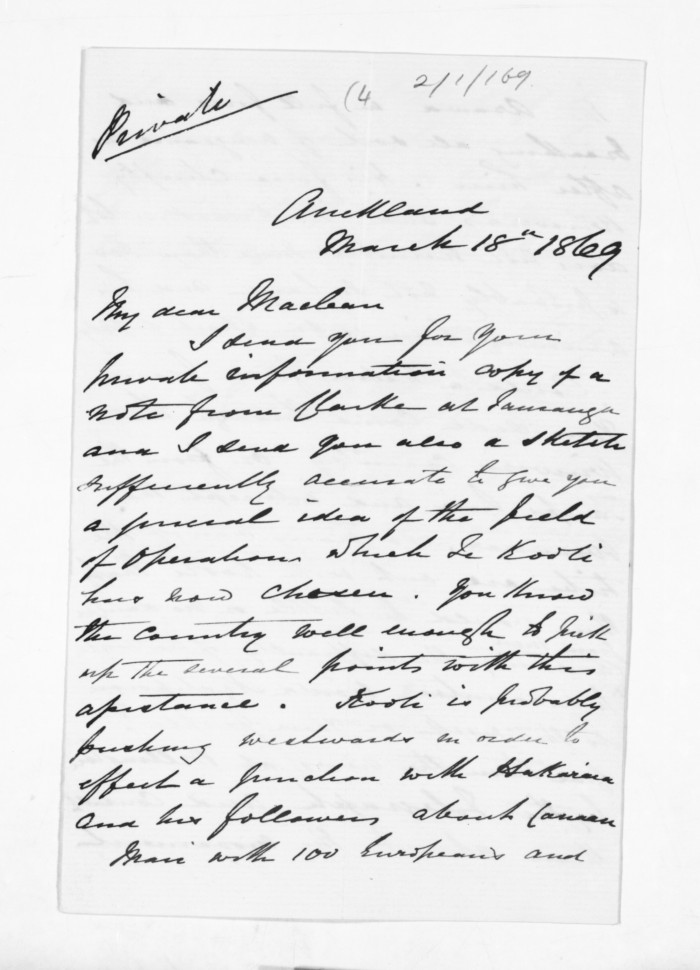 Private
(4 2/1/169
Auckland
March 18th 1869
My dear Maclean
I send you for your
private information copy of a
note from Clarke at Tauranga
and I send you also a sketch
sufficiently accurate to give you
a general idea of the field
of operations which Te Kooti
has now chosen. You know
the country well enough to pick
up the several points with this
assistance. Kooti is probably
pushing westwards in order to
effect a junction with Hakaraia
and his followers about Canaan
Mair with 100 Europeans and